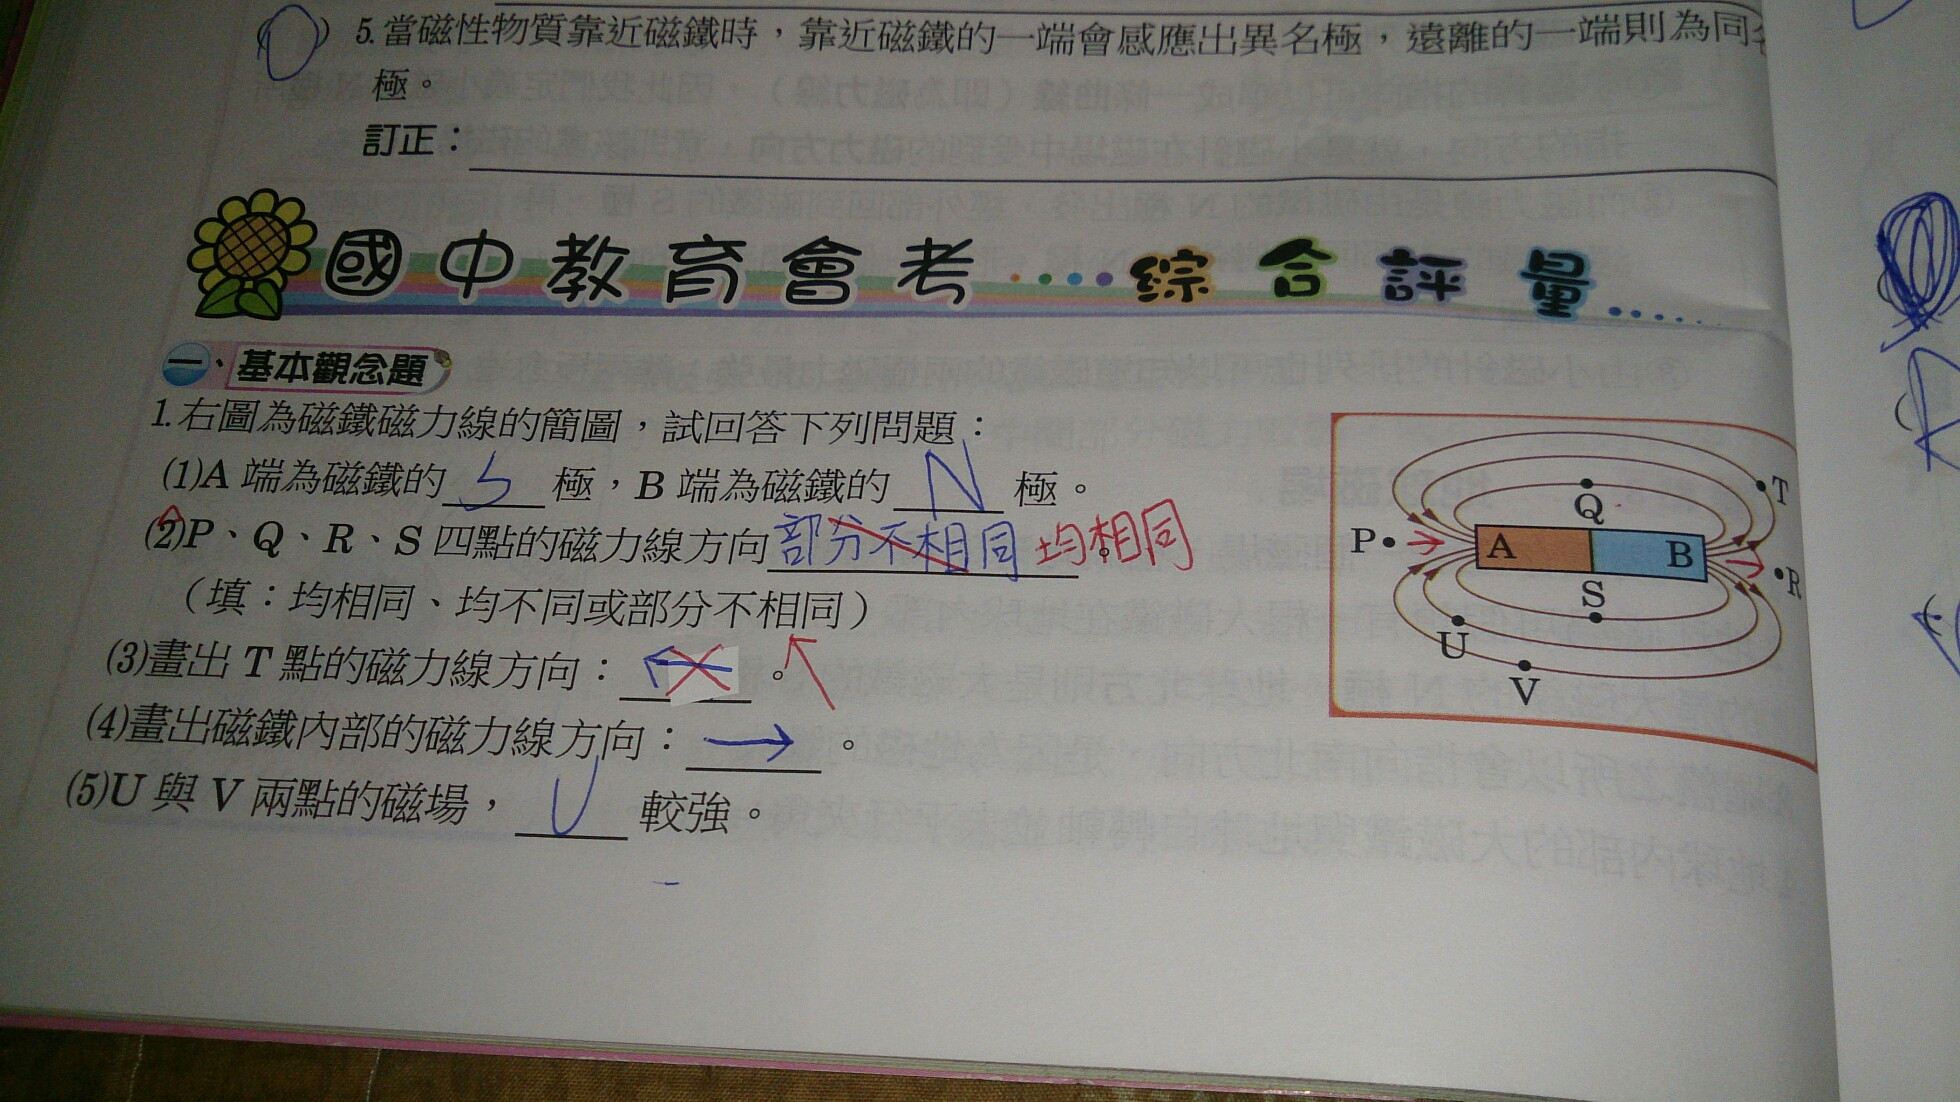 (O) 5.當磁性物質靠近磁鐵時，靠近磁鐵的一端會感應出異名極，遠離的一端則為同名
極。
訂正：
國中教育會考····綜合評量
一、基本觀念題
1.右圖為磁鐵磁力線的簡圖，試回答下列問題：
(1)A 端為磁鐵的 S 極，B 端為磁鐵的 N 極。
(2)P、Q、R、S 四點的磁力線方向部分不相同 均相同。
（填：均相同、均不同或部分不相同）
(3)畫出 T 點的磁力線方向：←。
(4)畫出磁鐵內部的磁力線方向：→。
(5)U 與 V 兩點的磁場，U 較強。
Q
T
P
A
B
R
S
U
V